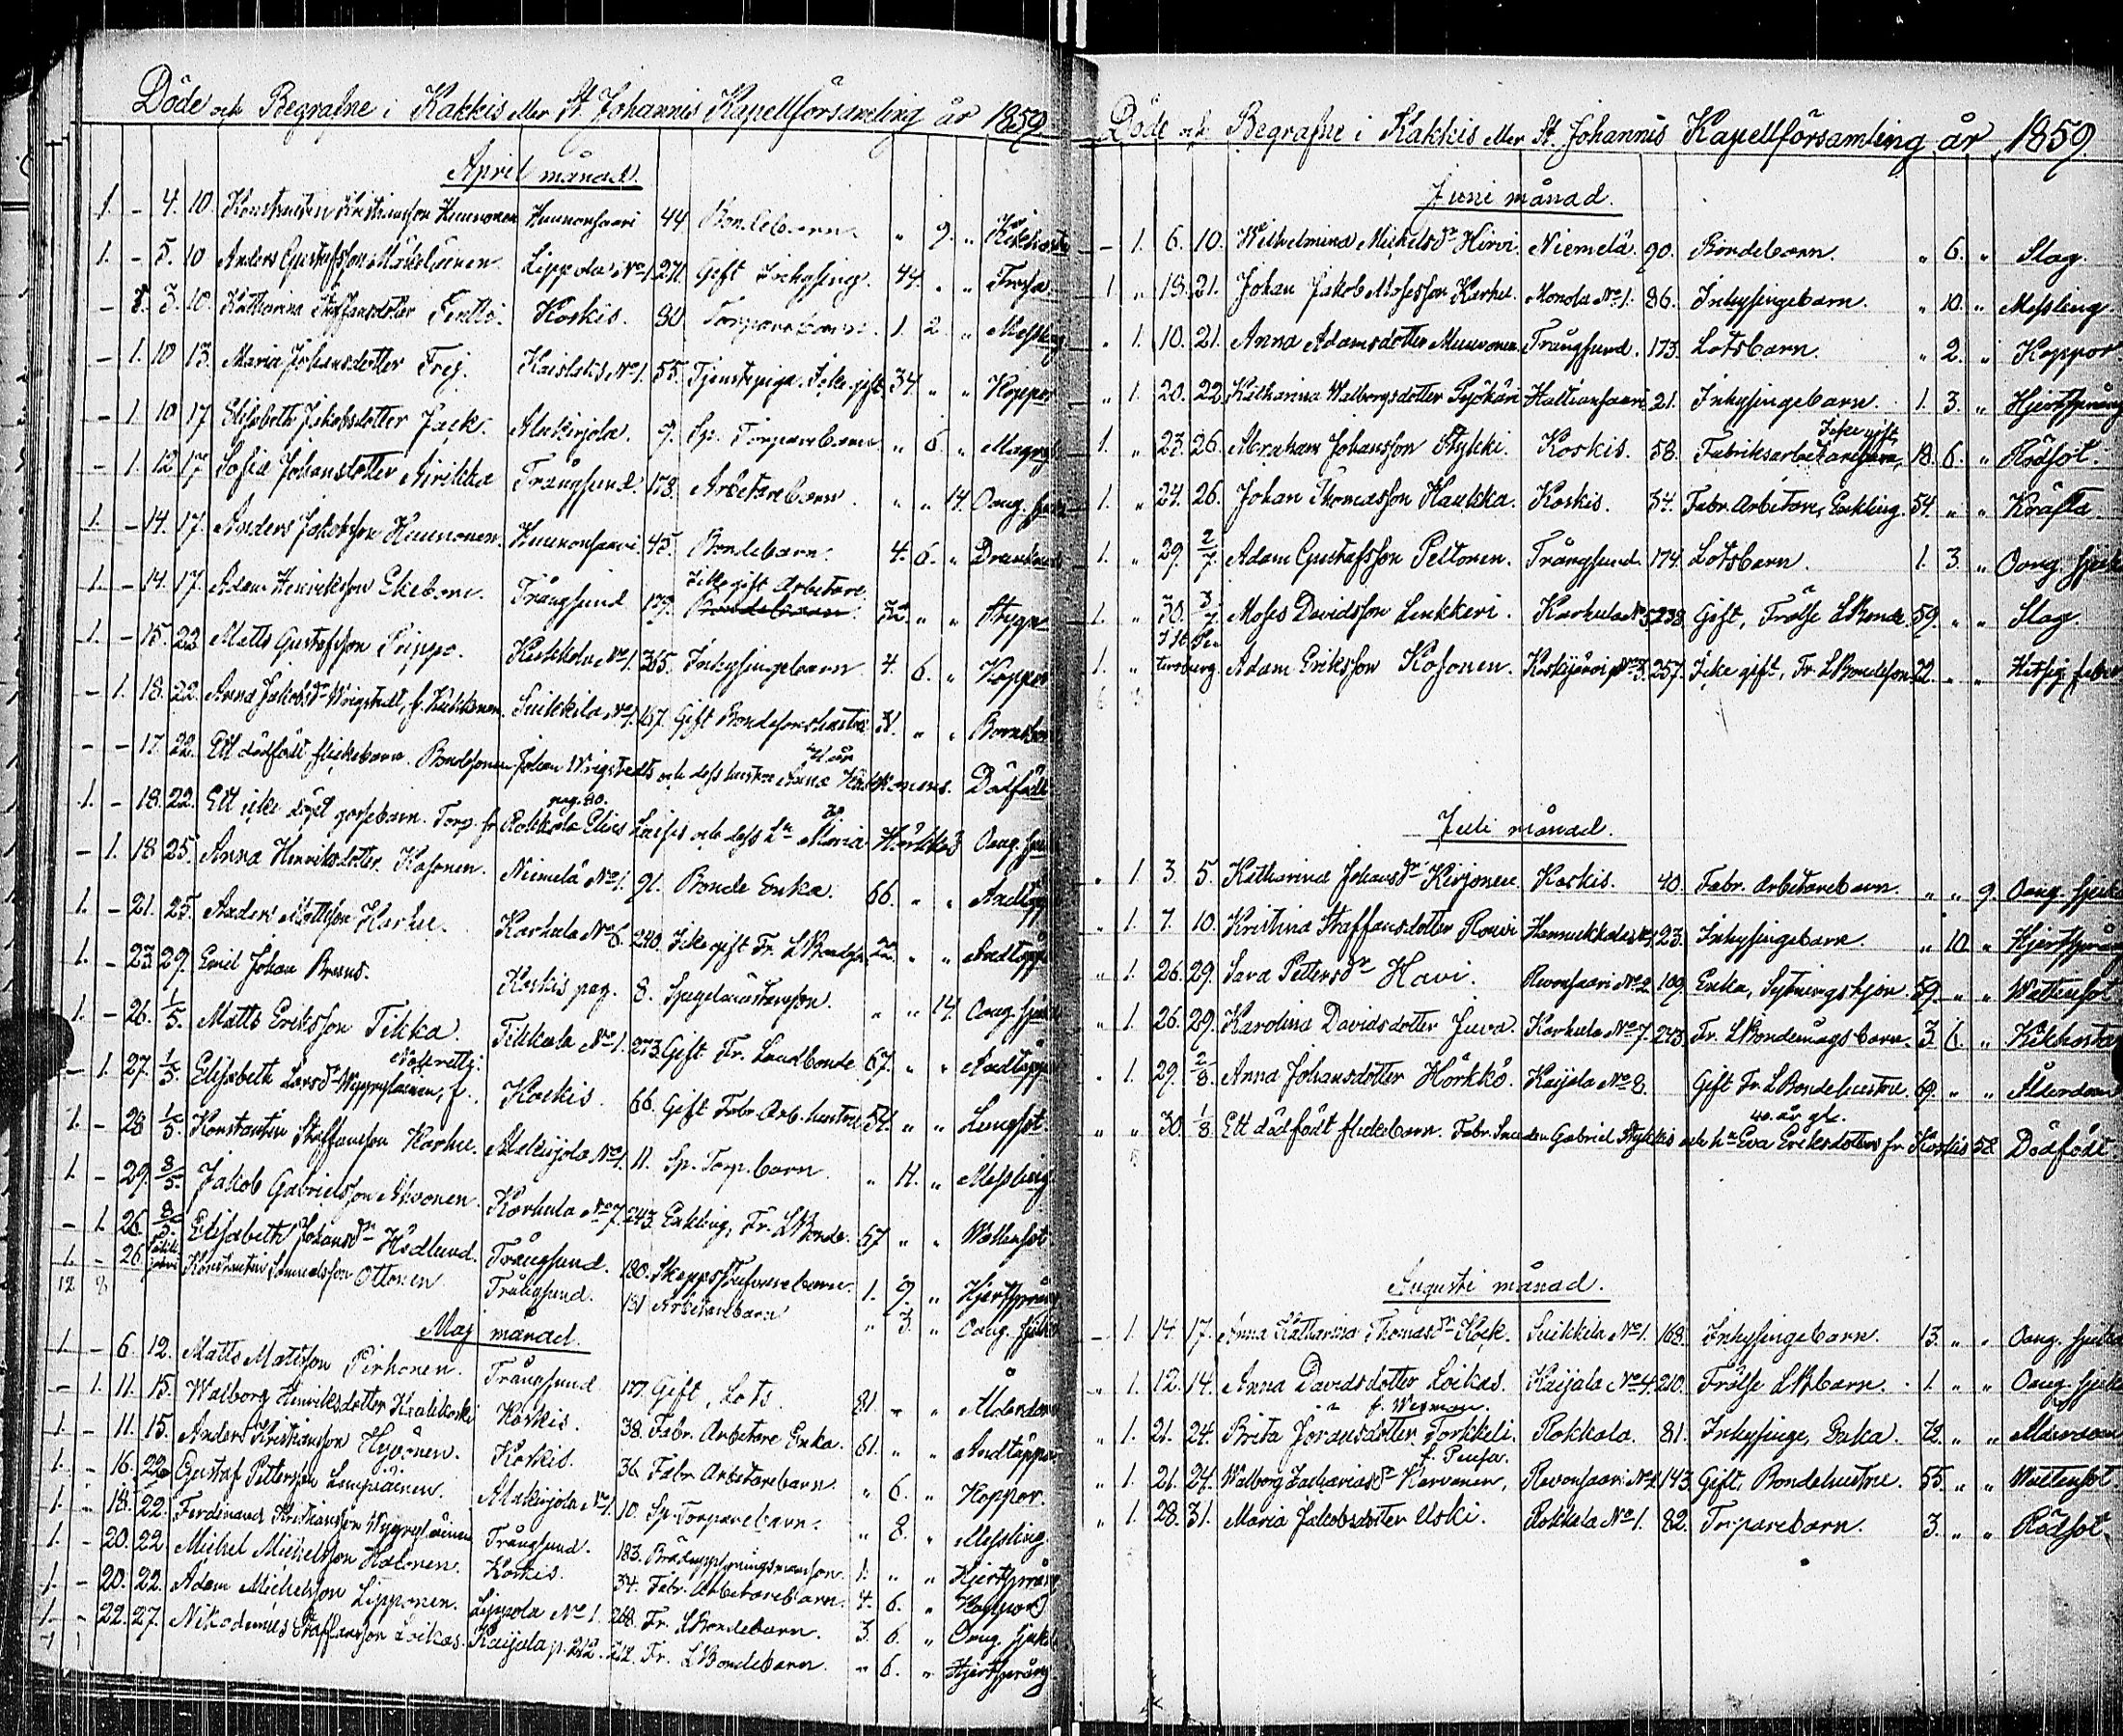 Döde och Begrafne i Kakkis eller St. Johannis Kapellförsamling år 1859
April månad.
1. - 4. 10. Konstantin Kristiansson Hunnonen Hunnonsaari 44 Bondebarn. " 9. " Kikhosta
1. - 5. 10 Anders Gustafsson Lippola No 1. 271. Gift Inhysing. 44. " "
- 1. 3. 10. Katharina Staffansdotter Tertti. Koskis. 30 Torparebarn. 1. 2. " Messling
- 1. 10 13. Maria Johansdotter Frej. Kaislaks No 1. 55. Tjenstepiga. Icke gift 34. " " Koppor
- 1. 10 17 Elisabeth Jakobsdotter Jack. Alakirjola. 9. Sp. Torparebarn " 6. "
- 1. 12 17 Sofia Johansdotter Airikka Trångsund. 178. Arbetarebarn. " " 14. Oang. sjuk
1. - 14. 17. Anders Jakobsson Hunnonen. Hunnonsaari 45. Bondebarn. 4. 6. "
1. - 14. 17. Adam Henriksson Ekebom. Trångsund 179. Icke gift Arbetare. Bondebarn 32. " "
1. - 15. 22 Matts Gustafsson Peippo. Kukkola No 1. 365. Inhysingebarn 4. 6. " Koppor
- 1. 18. 22. Anna Jakobsdr Wrigstedt, f. Kukkonen. Suikkila No 1. 167. Gift Bondesonshustru 31. " " Barnsbörd
- - 17. 22. Ett dödfödt flickebarn. Bondsonen Johan Wrigstedts och dess hustru Anna Kukkonens. 31 år Dödfödt
1. - 18. 22. Ett icke döpt gossebarn. Torp. fr Rokkola pag. 80. Elias Laisis och dess hu Maria Hörkkös Oang. sjuk
- 1. 18 25. Anna Henriksdotter Kosonen. Niemelä No 1. 91. Bonde Enka. 66. " " Andtäppa
1. - 21. 25. Anders Mattsson Karhu. Karhula No 6. 240. Icke gift Fr. LBondson 22. " " Andtäppa
1. - 23. 29. Emil Johan Bruns. Koskis pag. 8. Spegelmästareson. " " 14. Oang. sjuk
1. - 26. 1/5. Matts Eriksson Tikka. Tikkala No 1. 273. Gift Fr. Landbonde 67. " " Andtäppa
- 1. 27. 1/5. Elisabeth Larsdr Wyyryläinen, f. Koskis. 66. Gift Fabr. Arb. hustru 54. " " Lungsot.
1. - 28 1/5. Konstantin Staffansson Karhu. Alakirjola No 1. 11. Sp. Torp. barn " 11. " Messling
1. - 29. 8/5. Jakob Gabrielsson Ahvonen. Karhula No 7. 243. Enkling, Fr. LBonde. 57 " " Wattusot.
- 1. 26. 8/5. Elisabeth Johansdr Hedlund. Trångsund. 180. Skeppstimmermansbarn. 1. 9. " Hjertsprång
1. - 26. Konstantin Samuelsson Ottonen Trångsund. 181 Arbetarebarn " 3. " Oang. sjuk
12 8
Maj månad.
1. - 6. 12. Matts Matsson Pirhonen. Trångsund 177. Gift, Lots. 81. - " Ålderdom
- 1. 11. 15. Walborg Henriksdotter Kralikoski Koskis. 38. Fabr. Arbetare Enka. 61. " " Andtäppa
1. - 11. 15. Anders Kristiansson Hyvönen. Koskis. 36. Fabr. Arbetarebarn " 6. " Koppor.
1. - 16. 22. Gustaf Pettersson Lempiäinen. Alakirjola No 1. 10. Sp. Torparebarn. " 8. " Messling.
1. - 18. 22. Ferdinand Kristiansson Wyyryläinen Trångsund. 183. 1. " " Hjertsprång
1. - 20. 22 Michel Michelsson Halonen. Koskis. 34. Fabr. Arbetarebarn. 4. 6. " Koppor
1. - 20. 22. Adam Michelsson Lipponen. Lippola No 1. 268. Fr. LBondebarn. 3. 6. " Oang. sjuk
1. - 22. 27. Nikodemus Staffansson Loikas. Kaijala p. 212. 212. Fr. LBondebarn. " 6. " Hjertsprång
Döde och Begrafne i Kakkis eller St. Johannis Kapellförsamling år 1859.
Juni månad.
- 1. 6. 10. Wilhelmina Mickelsdr Hirvi. Niemelä. 90. Bondebarn. " 6. " Slag.
1 " 18. 21. Johan Jakob Mosesson Karhu. Monola No 1. 86. Inhysingebarn. " 10. " Messling.
" 1. 10. 21. Anna Adamsdotter Munnonen. Trångsund. 173. Lotsbarn. " 2. " Koppor
" 1. 20. 22. Katharina Walborgsdotter Pyökäri Hattiansaari 21. Inhysingebarn. 1. 3. " Hjertsprång
1. " 23. 26. Abraham Johansson Stykki. Koskis. 58. Fabriksarbetare Icke gift 18. 6. " Rödsot.
1. " 24. 26. Johan Thomasson Haukka. Koskis. 34. Fabr. Arbetare, Enkling. 54. " " Kräfta.
1. " 29. 2/7. Adam Gustafsson Peltonen. Trångsund 174. Lotsbarn. 1. 3. " Oang. sjuk
1. " 30. 3/7. Moses Davidsson Linkkeri. Karhula No 5. 238. Gift, Frälse LBonde. 59. " " Slag.
1. " I St. Petersburg. Adam Eriksson Kosonen. Koskijärvi No 3. 257. Icke gift, Fr. LBondeson. 22. " " Hetsig feber
Juli månad.
" 1 3. 5. Katharina Johansdr Kirjonen Koskis. 40. Fabr. Arbetarebarn. " " 9. Oang. sjuk
" 1. 7. 10. Kristina Staffansdotter Rouvi Hannukkala No 1. 123. Inhysingebarn. " 10. " Hjertsprång
" 1. 26. 29. Sara Pettersdr Havi. Revonsaari No 2. 109. Enka, Sytningshjon. 59. " " Wattusot
" 1. 26. 29. Karolina Davidsdotter Juva. Karhula No 7. 243. Fr. LBondemågs barn. 3. 6. " Kikhosta
" 1. 29. 2/8. Anna Johansdotter Hörkkö. Kaijala No 8. Gift Fr. LBondehustru. 69. " " Ålderdom
" " 30. 1/8. Ett dödfödt flickebarn. Fabr. Smeden Gabriel Stykkis och hu Eva Eriksdotters 40. år gl. fr. Koskis 58 Dödfödt.
Augusti månad.
- 1. 14. 17. Anna Katharina Thomasdr Kock. Suikkila No 1. 168. Inhysingebarn. 13. " " Oang. sjuk
" 1. 12. 14. Anna Davidsdotter Loikas. Kaijala No 4. 210. Frälse LBbarn. 1. " " Oang. sjuk
" 1. 21. 24. Brita Göransdotter Torkkeli. f. Wesman. Rokkala. 81. Inhysinge, Enka. 72. " " Ålderdom
" 1. 21. 24. Walborg Zachariasdr Karvanen, f. Pusa. Revonsaari No 2. 143. Gift, Bondehustru. 55. " " Wattusot
" 1. 28. 31. Maria Jakobsdotter Uski. Rokkala No 1. 82. Torparebarn. 3. " " Rödsot.